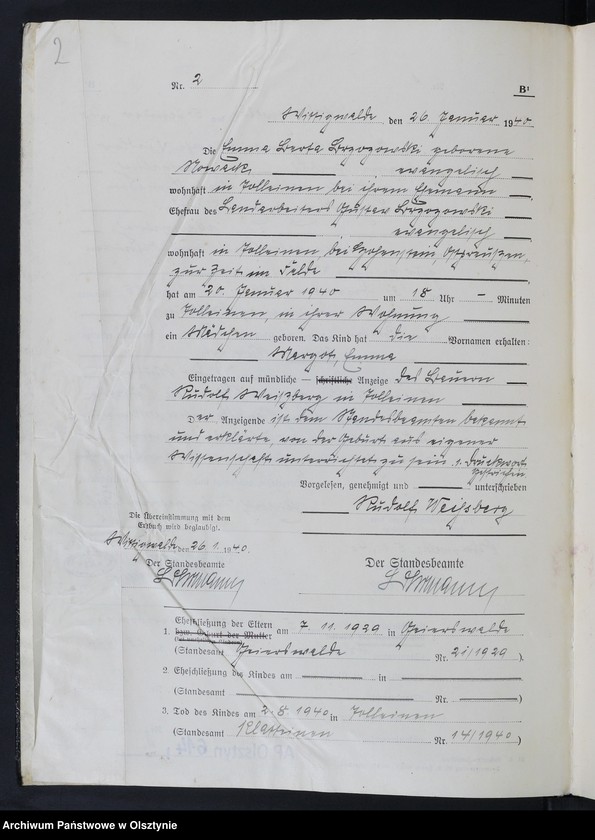 2
Nr. 2
B¹
Wittigwalde, den 26. Januar 1940
Die Emma Berta Brzozowski geborene
Nowacki evangelisch
wohnhaft in Tolleinen bei ihrem Ehemann
Ehefrau des Landarbeiters Gustav Brzozowski
evangelisch
wohnhaft in Tolleinen, bei Hohenstein, Ostpreußen,
zur Zeit im Felde
hat am 20. Januar 1940 um 18 Uhr – Minuten
zu Tolleinen, in ihrer Wohnung
ein Mädchen geboren. Das Kind hat die Vornamen erhalten:
Margot, Emma
Eingetragen auf mündliche — schriftliche Anzeige des Bauern
Rudolf Weißberg in Tolleinen
Der Anzeigende ist dem Standesbeamten bekannt
und erklärte, von der Geburt aus eigener
Wissenschaft unterrichtet zu sein. 1 Druckwort
gestrichen.
Vorgelesen, genehmigt und unterschrieben
Rudolf Weißberg
Die Übereinstimmung mit dem
Erstbuch wird beglaubigt.
Wittigwalde, den 26.1. 1940.
Der Standesbeamte
Der Standesbeamte
1. Eheschließung der Eltern
bzw. Geburt der Mutter am 7.11.1939 in Geierswalde
(Standesamt Geierswalde Nr. 21/1939).
2. Eheschließung des Kindes am in
(Standesamt Nr. )
3. Tod des Kindes am 2.8.1940 in Tolleinen
(Standesamt Nr. 14/1940)
Archiwum Państwowe w Olsztynie